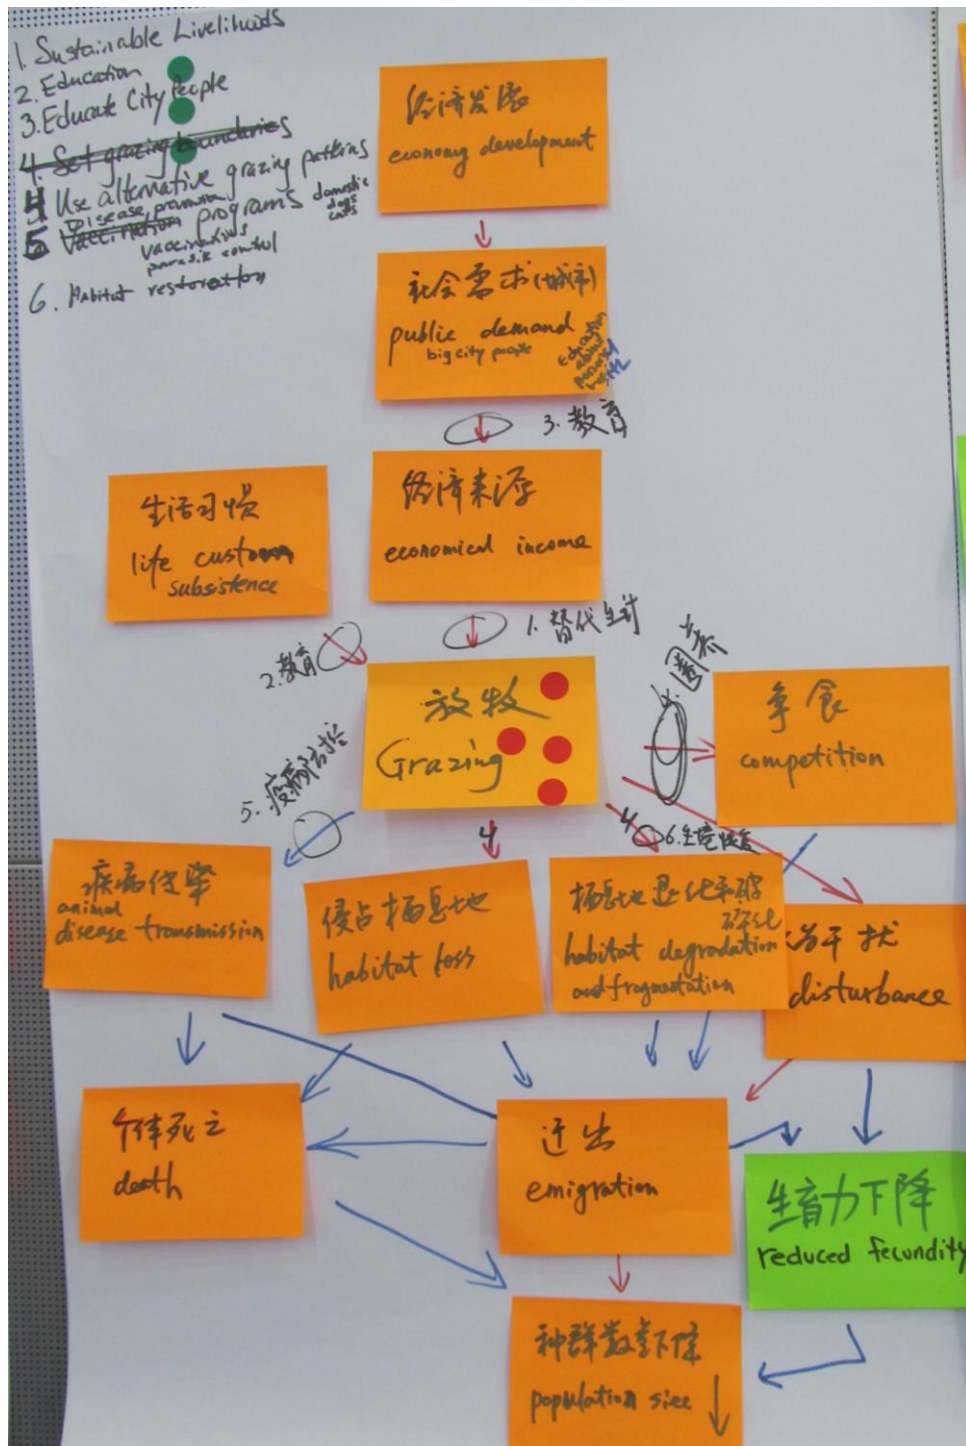 1. Sustainable Livelihoods
2. Education
3. Educate City People
4. Set grazing boundaries
4 Use alternative grazing patterns
Disease prevention
5 Vaccination programs domestic
dogs
cats
vaccinations
parasite control
6. Habitat restoration
经济发展
economy development
社会需求(城市)
public demand
big city people
education
about
3. 教育
经济来源
economical income
生活习惯
life custom
subsistence
1. 替代生计
2. 教育
放牧
Grazing
圈养
争食
competition
5. 疫病防控
4
4
6. 生境恢复
疾病传染
animal
disease transmission
侵占栖息地
habitat loss
栖息地退化和破
碎化
habitat degradation
and fragmentation
干扰
disturbance
个体死亡
death
迁出
emigration
生育力下降
reduced fecundity
种群数量下降
population size ↓